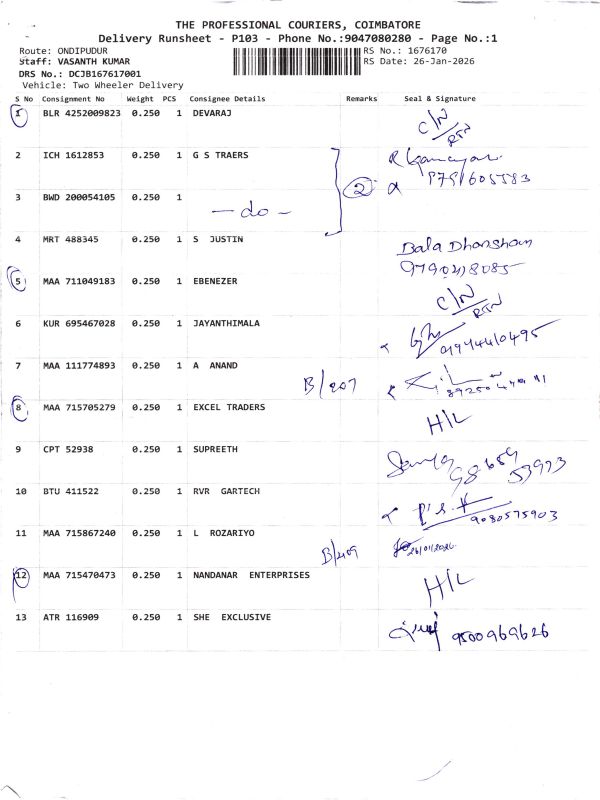 THE PROFESSIONAL COURIERS, COIMBATORE
Delivery Runsheet - P103 - Phone No.:9047080280 - Page No.:1
Route: ONDIPUDUR RS No.: 1676170
Staff: VASANTH KUMAR RS Date: 26-Jan-2026
DRS No.: DCJB167617001
Vehicle: Two Wheeler Delivery
S No Consignment No Weight PCS Consignee Details Remarks Seal & Signature
1 BLR 4252009823 0.250 1 DEVARAJ C/N RTN
2 ICH 1612853 0.250 1 G S TRAERS
3 BWD 200054105 0.250 1 - do - 2
4 MRT 488345 0.250 1 S JUSTIN Bala Dharshan
9790418085
5 MAA 711049183 0.250 1 EBENEZER C/N RTN
6 KUR 695467028 0.250 1 JAYANTHIMALA
7 MAA 111774893 1 0.250 1 A ANAND B/207
8 MAA 715705279 0.250 1 EXCEL TRADERS H/L
9 CPT 52938 0.250 1 SUPREETH 98659
53973
10 BTU 411522 0.250 1 RVR GARTECH 9080575903
11 MAA 715867240 0.250 1 L ROZARIYO B/409 26/01/2026
12 MAA 715470473 0.250 1 NANDANAR ENTERPRISES H/L
13 ATR 116909 0.250 1 SHE EXCLUSIVE 9500969626